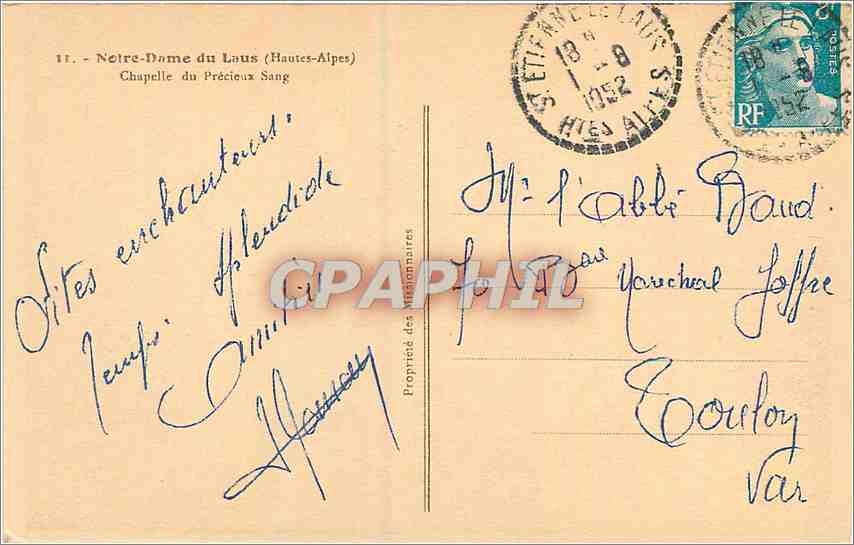 11. - Notre-Dame du Laus (Hautes-Alpes)
Chapelle du Précieux Sang
Sites enchanteurs.
Temps splendide
Amitié
Propriété des Missionnaires
CPAPHIL
ST ETIENNE LE LAUS
18 H
1 - 8
1952
HTES ALPES
ST ETIENNE LE
18
- 8
1952
POSTES
RF
Mr l'Abbé Baud.
70 Bd Marechal Joffre
Toulon
Var